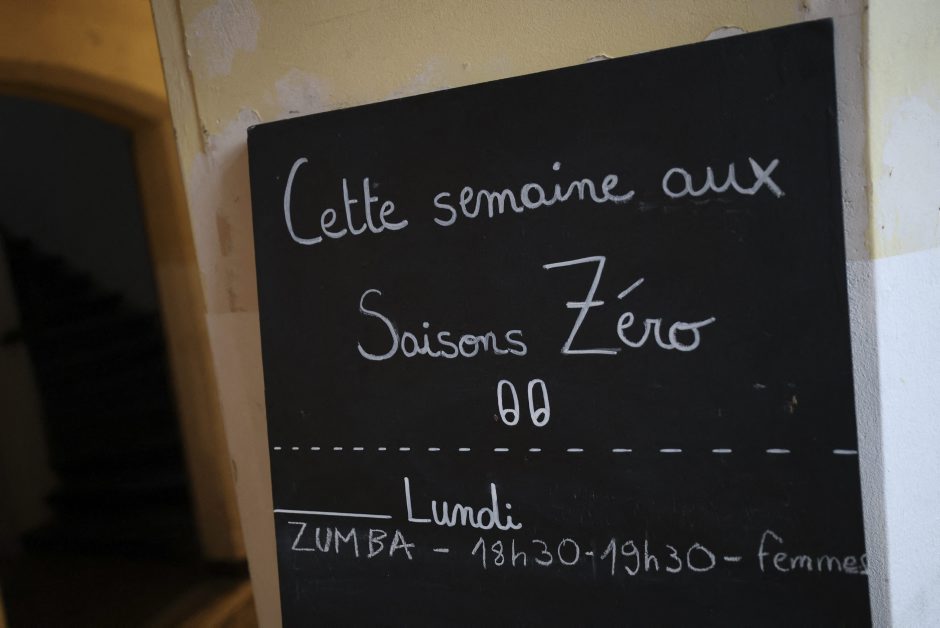 Cette semaine aux
Saisons Zéro
Lundi
ZUMBA - 18h30-19h30 - femmes